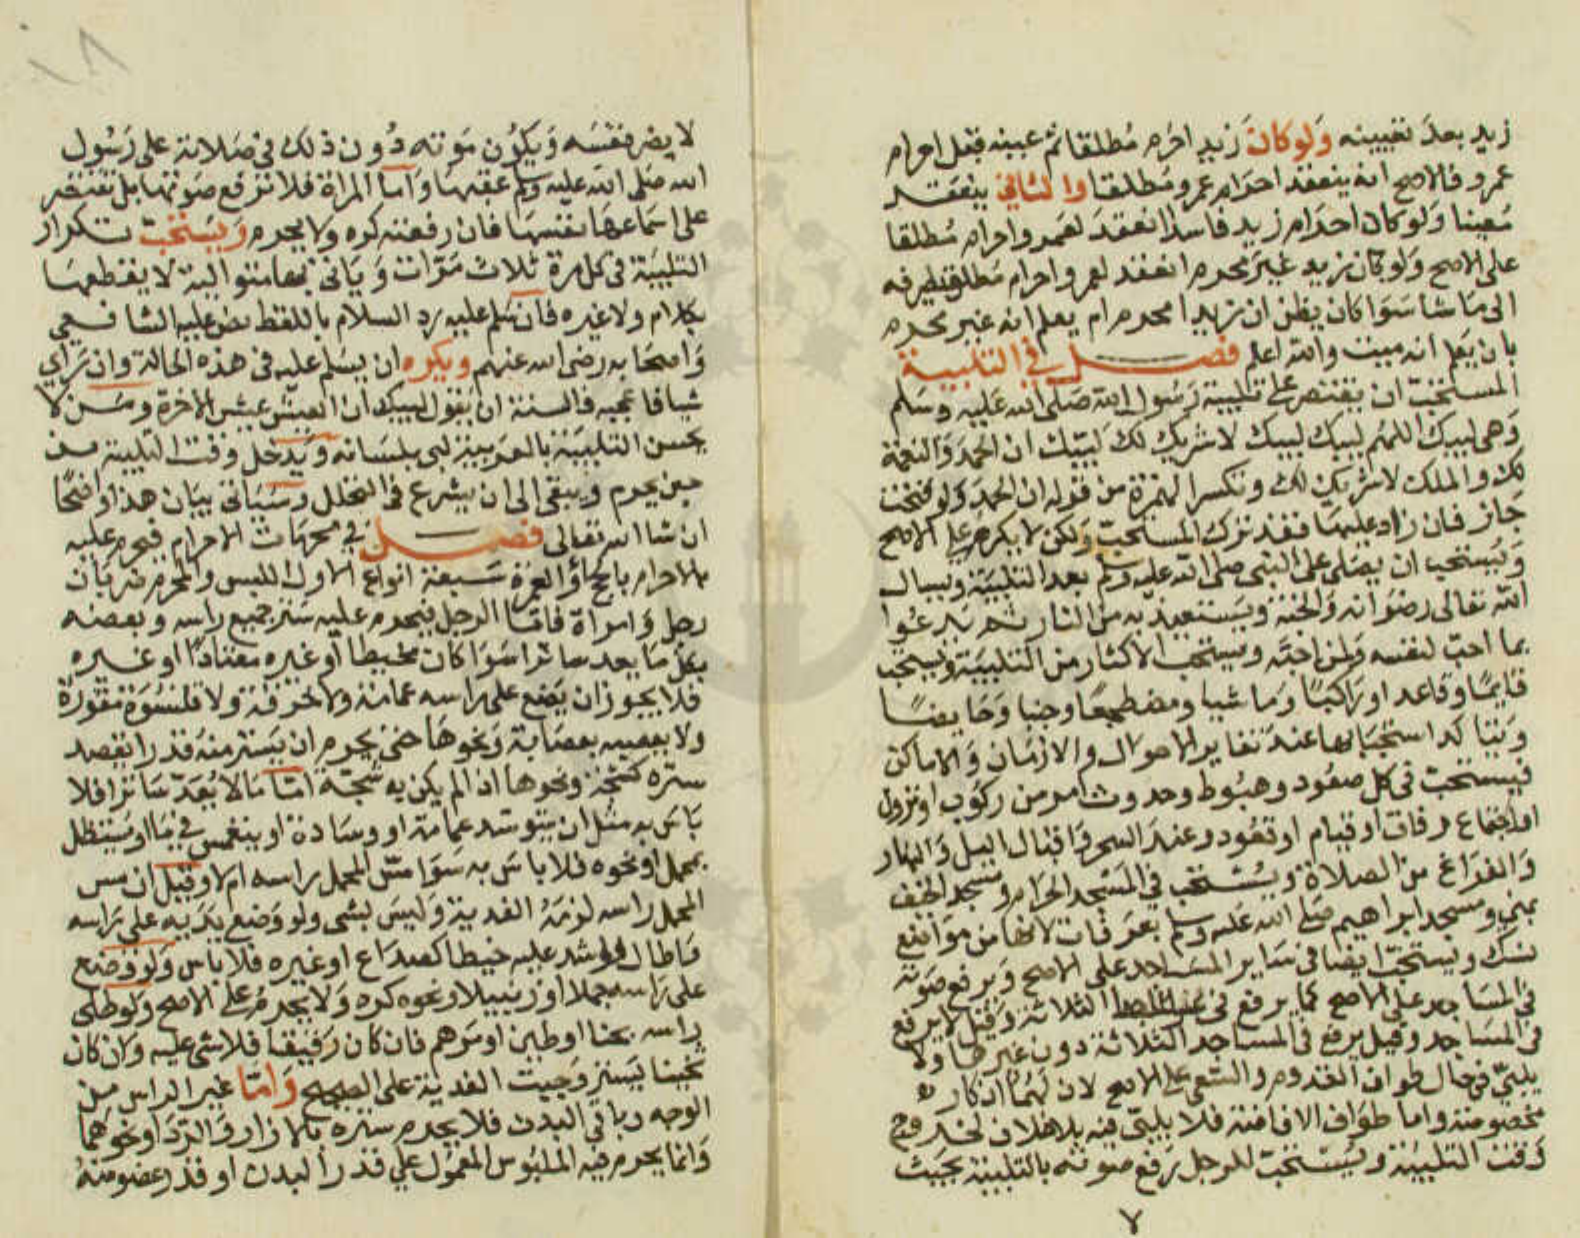 زيد بعد تعيينه ولو كان زيد احرم مطلقا ثم عينه قبل احرام
عمرو فالاصح انه ينعقد احرام عمرو مطلقا والثاني ينعقد
معينا ولو كان احرام زيد فاسدا انعقد لعمرو احرام مطلقا
على الاصح ولو كان زيد غير محرم انعقد لعمرو احرام مطلق يصرفه
الى ما شا سوا كان يظن ان زيدا محرم ام يعلم انه غير محرم
بان يعلم انه ميت والله اعلم فصل في التلبية
المستحب ان يقتصر على تلبية رسول الله صلى الله عليه وسلم
وهي لبيك اللهم لبيك لبيك لا شريك لك لبيك ان الحمد والنعمة
لك والملك لا شريك لك وتكسر الهمزة من قوله ان الحمد ولو فتحت
جاز فان زاد عليها فقد ترك المستحب ولكن لا يكره على الاصح
ويستحب ان يصلي على النبي صلى الله عليه وسلم بعد التلبية ويسال
الله تعالى رضوانه والجنة ويستعيذ به من النار ثم يدعوا
بما احب لنفسه ولمن احبه ويستحب الاكثار من التلبية ويستحب
قايما وقاعدا وراكبا وماشيا ومضطجعا وجنبا وحايضا
ويتاكد استحبابها عند تغاير الاحوال والازمان والاماكن
فيستحب في كل صعود وهبوط وحدوث امر من ركوب او نزول
او اجتماع رفاق او قيام او قعود وعند السحر واقبال الليل والنهار
والفراغ من الصلاة ويستحب في المسجد الحرام ومسجد الخيف
بمنى ومسجد ابراهيم صلى الله عليه وسلم بعرفات لانها من مواضع
نسك ويستحب ايضا في ساير المساجد على الاصح ويرفع صوته
في المساجد على الاصح كما يرفع في الثلاثة وقيل لا يرفع
في المساجد وقيل يرفع في المساجد الثلاثة دون غيرها ولا
يلبي في حال طواف القدوم والسعي على الاصح لان لهما اذكارا
مخصوصة واما طواف الافاضة فلا يلبي فيه بلا خلاف لخروج
وقت التلبية ويستحب للرجل رفع صوته بالتلبية بحيث
٧
١٨
لا يضر نفسه ويكون صوته دون ذلك في صلاته على رسول
الله صلى الله عليه وسلم عقبها واما المراة فلا ترفع صوتها بل تقتصر
على اسماعها نفسها فان رفعته كره ولا يحرم ويستحب تكرار
التلبية في كل مرة ثلاث مرات وياتي بها متوالية لا يقطعها
بكلام ولا غيره فان سلم عليه رد السلام باللفظ نص عليه الشافعي
واصحابه رضى الله عنهم ويكره ان يسلم عليه في هذه الحالة وان راي
شيا فاعجبه فالسنة ان يقول لبيك ان العيش عيش الاخرة ومن لا
يحسن التلبية بالعربية لبى بلسانه ويدخل وقت التلبية من
حين يحرم ويبقى الى ان يشرع في التحلل وسياتي بيان هذا واضحا
ان شا الله تعالى فصل في محرمات الاحرام فيحرم عليه
بالاحرام بالحج او العمرة سبعة انواع الاول اللبس والمحرم ضربان
رجل وامراة فاما الرجل فيحرم عليه ستر جميع راسه وبعضه
بكل ما يعد ساترا سوا كان مخيطا او غيره معتادا او غيره
فلا يجوز ان يضع على راسه عمامة ولا خرقة ولا قلنسوة مقورة
ولا يعصبه بعصابة ونحوها حتى يحرم ان يستر منه قدرا يقصد
ستره كشجة ونحوها اذا لم يكن به شجة اما ما لا يعد ساترا فلا
باس به مثل ان يتوسد عمامة او وسادة او ينغمس في ما او يستظل
بمحمل او نحوه فلا باس به سوا مس المحمل راسه ام لا وقيل ان مس
المحمل راسه لزمه الفدية وليس بشى ولو وضع يديه على راسه
واطال او شد عليه خيطا لصداع او غيره فلا باس ولو وضع
على راسه حملا او زنبيلا ونحوه كره ولا يحرم على الاصح ولو طلى
راسه بحنا او طين او مرهم فان كان رقيقا فلا شى عليه وان كان
ثخينا يستر وجبت الفدية على الصحيح واما غير الراس من
الوجه وباقي البدن فلا يحرم ستره بالازار والردا ونحوهما
وانما يحرم فيه الملبوس المعمول على قدر البدن او قدر عضو منه